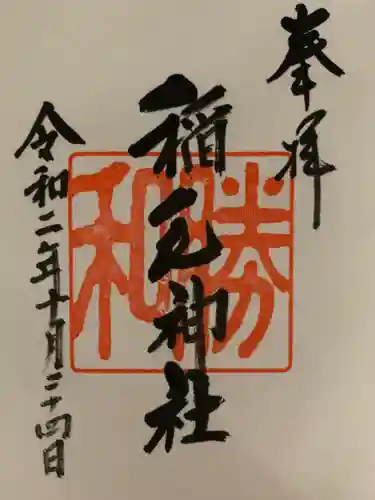 奉拝
稲毛神社
勝和
令和二年十月二十四日